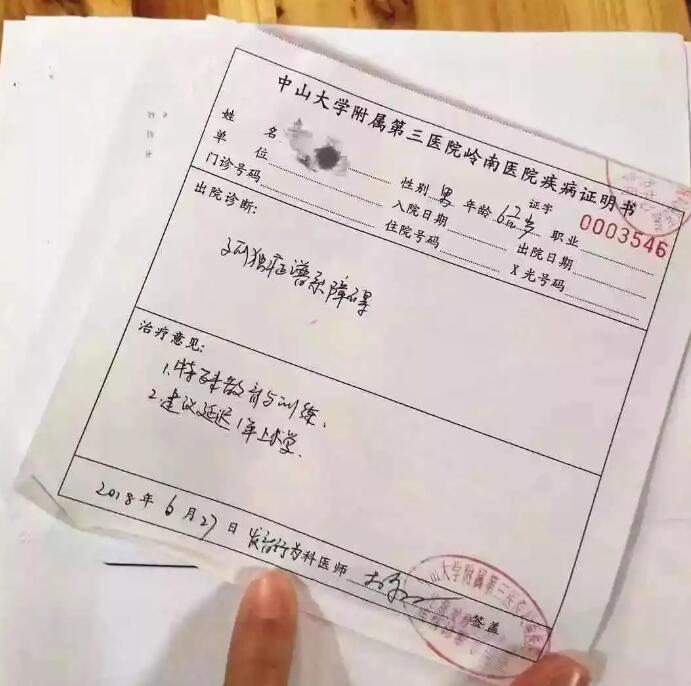 中山大学附属第三医院岭南医院疾病证明书
姓名 性别 男 年龄 岁 证字 0003546
单位 入院日期 职业
门诊号码 住院号码 出院日期
X光号码
出院诊断:
孤独症谱系障碍
治疗意见:
1.特殊教育与训练、
2.建议延迟1年上小学.
2018年6月27日 发育行为科医师 签盖